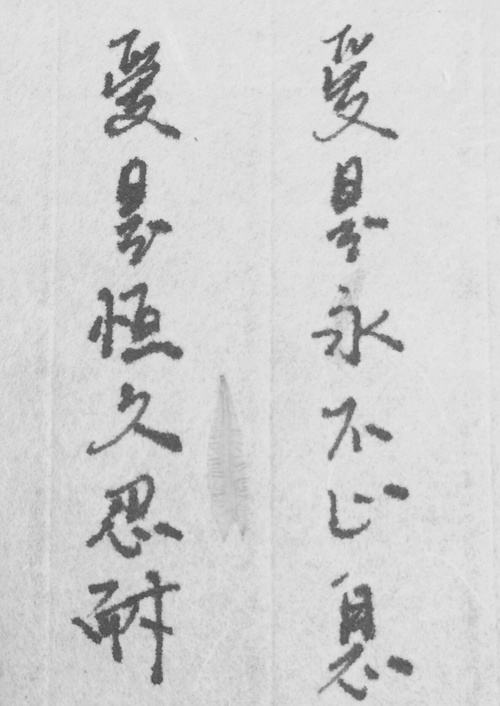 愛是永不止息
愛是恒久忍耐